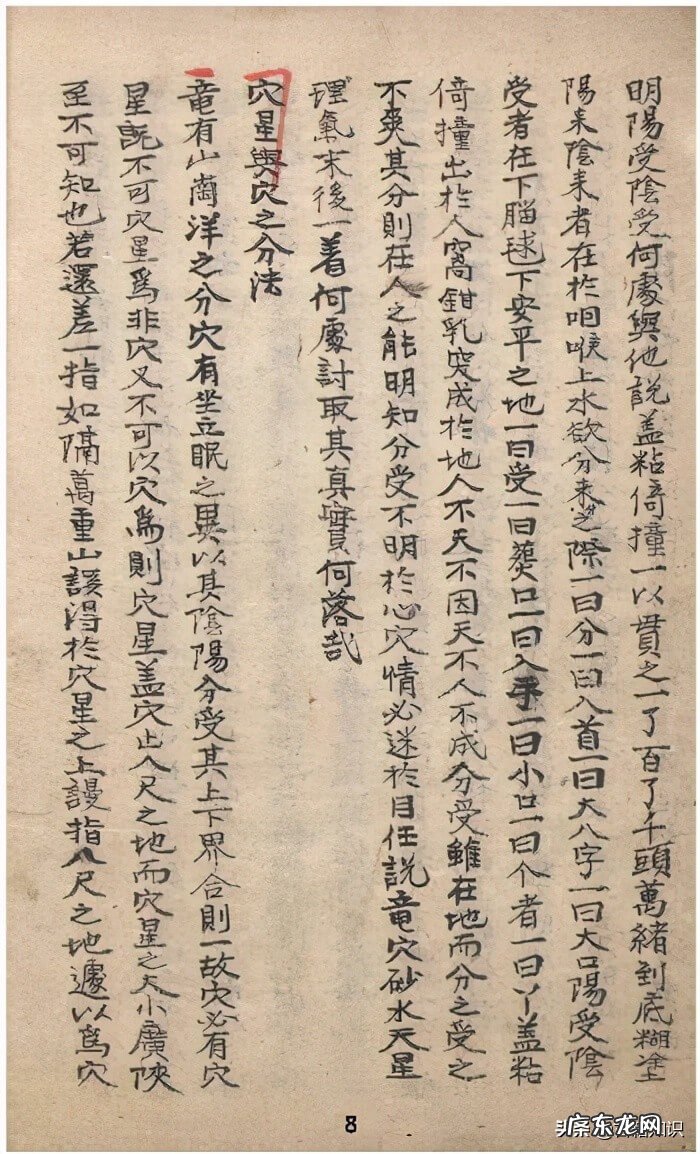 明陽受陰受何處與他說盖粘倚撞一以貫之一了百了千頭萬緒到底糊塗
陽来陰来者在於咽喉上水欲分未之際一曰分一曰入首一曰大八字一曰大口陽受陰
受者在下腦球下安平之地一曰受一曰葬口一曰入手一曰小口一曰个者一曰丫盖粘
倚撞出於人窩鉗乳突成於地人不天不因天不人不成分受雖在地而分之受之
不爽其分則在人之能明知分受不明於心穴情必迷於目任說竜穴砂水天星
理氣末後一着何處討取其真實何落哉
穴星與穴之分法
竜有山崗洋之分穴有坐立眠之異以其陰陽分受其上下界合則一故穴必有穴
星既不可穴星爲非穴又不可以穴爲則穴星盖穴止八尺之地而穴星之大小廣陝
至不可知也若還差一指如隔萬重山誤得於穴星之上謾指八尺之地遽以爲穴
8
头条
廣东龙网
识